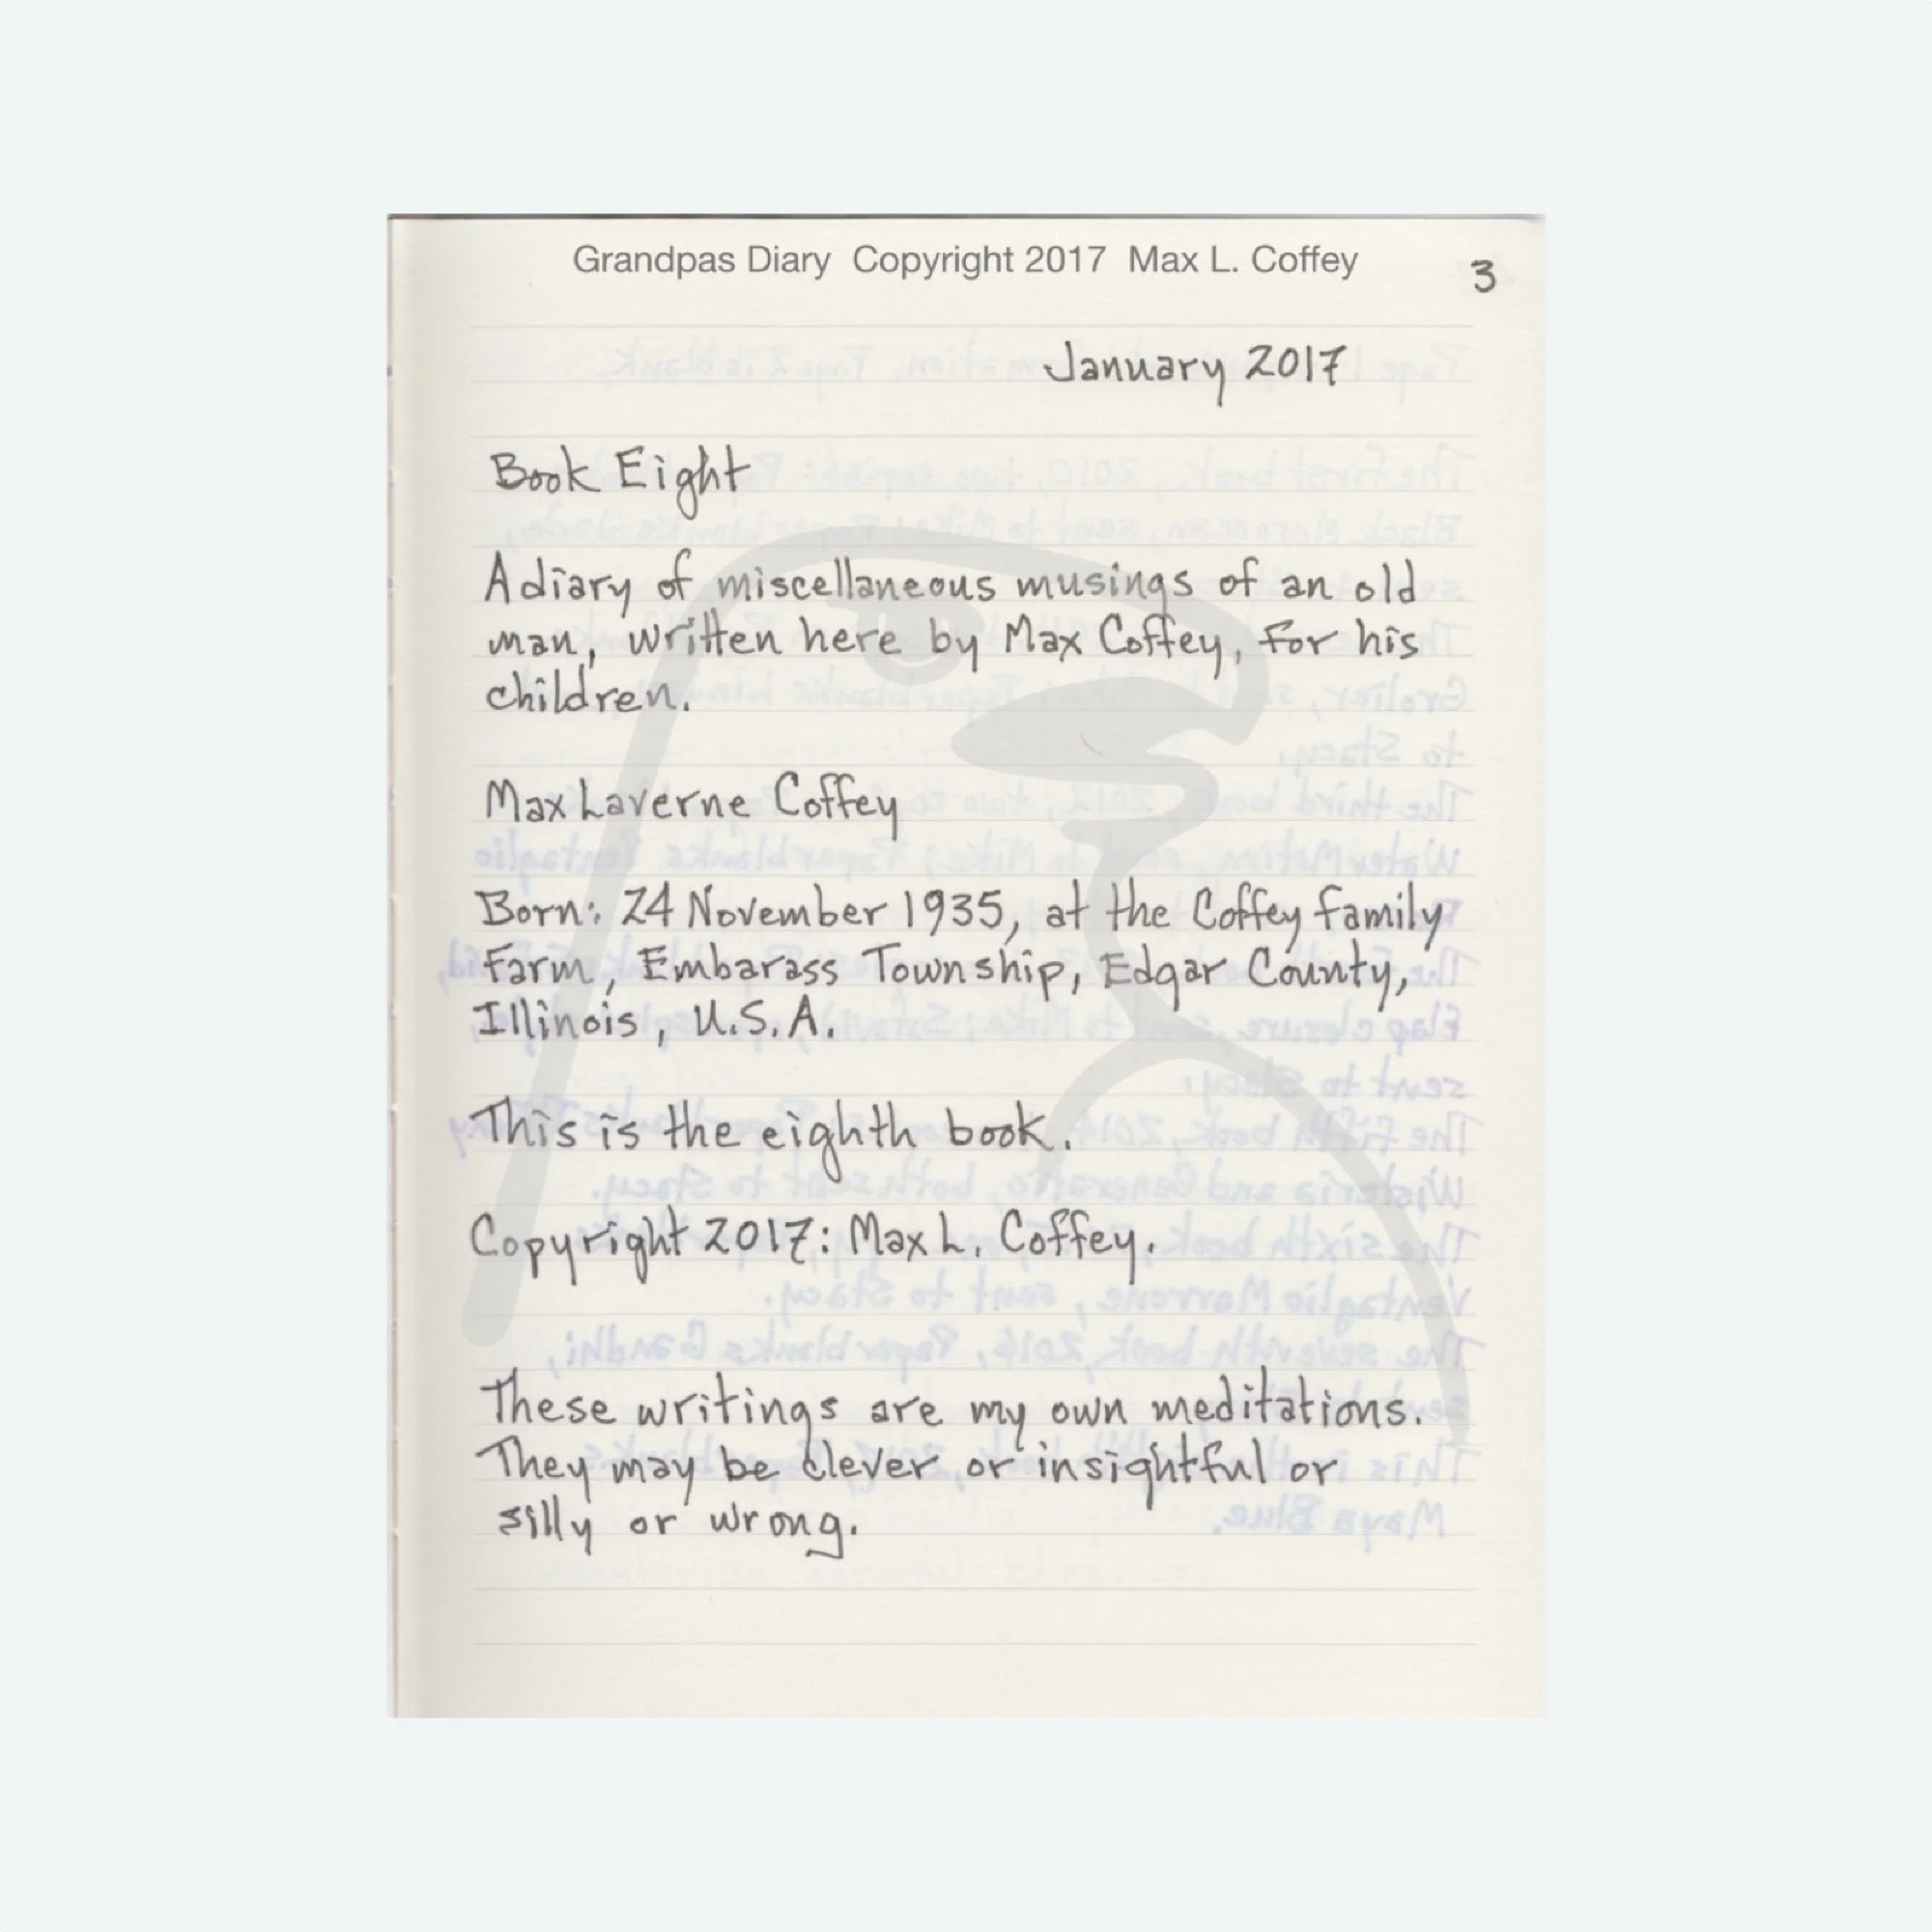 Grandpas Diary Copyright 2017 Max L. Coffey
3
January 2017
Book Eight
A diary of miscellaneous musings of an old
man, written here by Max Coffey, for his
children.
Max Laverne Coffey
Born: 24 November 1935, at the Coffey family
farm, Embarass Township, Edgar County,
Illinois, U.S.A.
This is the eighth book.
Copyright 2017: Max L. Coffey.
These writings are my own meditations.
They may be clever or insightful or
silly or wrong.